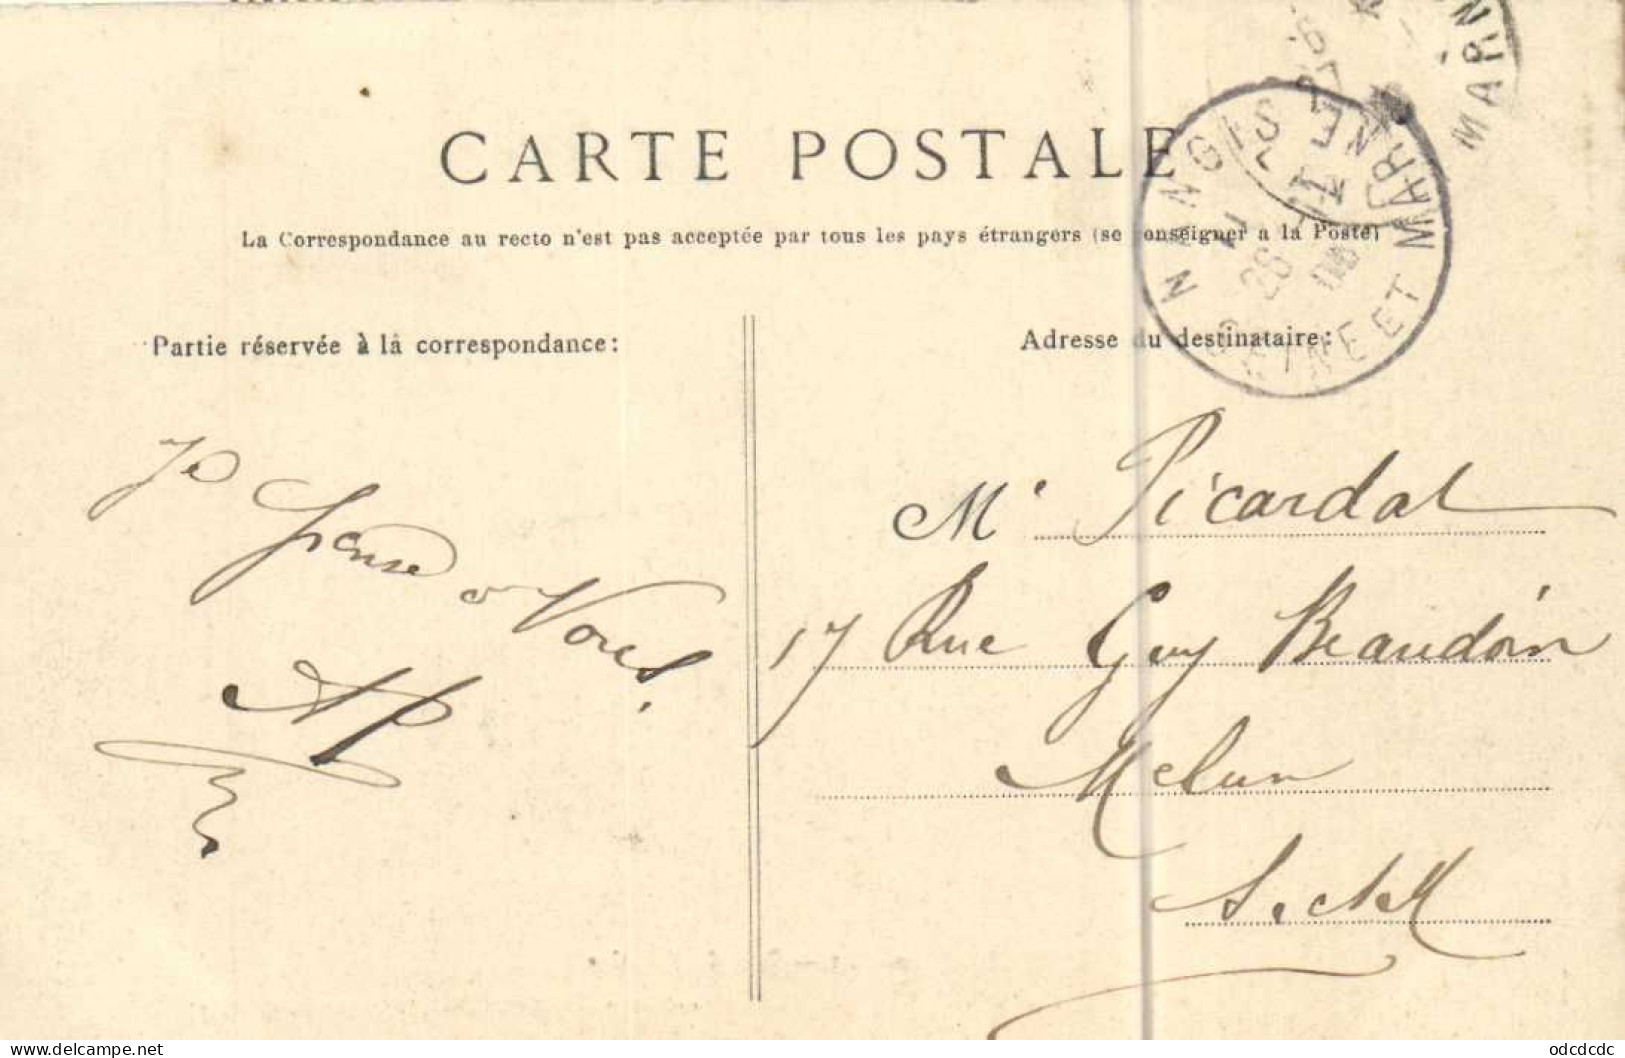 CARTE POSTALE
La Correspondance au recto n'est pas acceptée par tous les pays étrangers (se renseigner a la Poste)
Partie réservée à la correspondance:
Adresse du destinataire:
NANGIS
26
SEINE ET MARNE
MARN
Je
pense a Vous!
AP
Mr Picardat
17 Rue Guy Beaudoin
Melun
S. et M
delcampe.net
odcdcdc